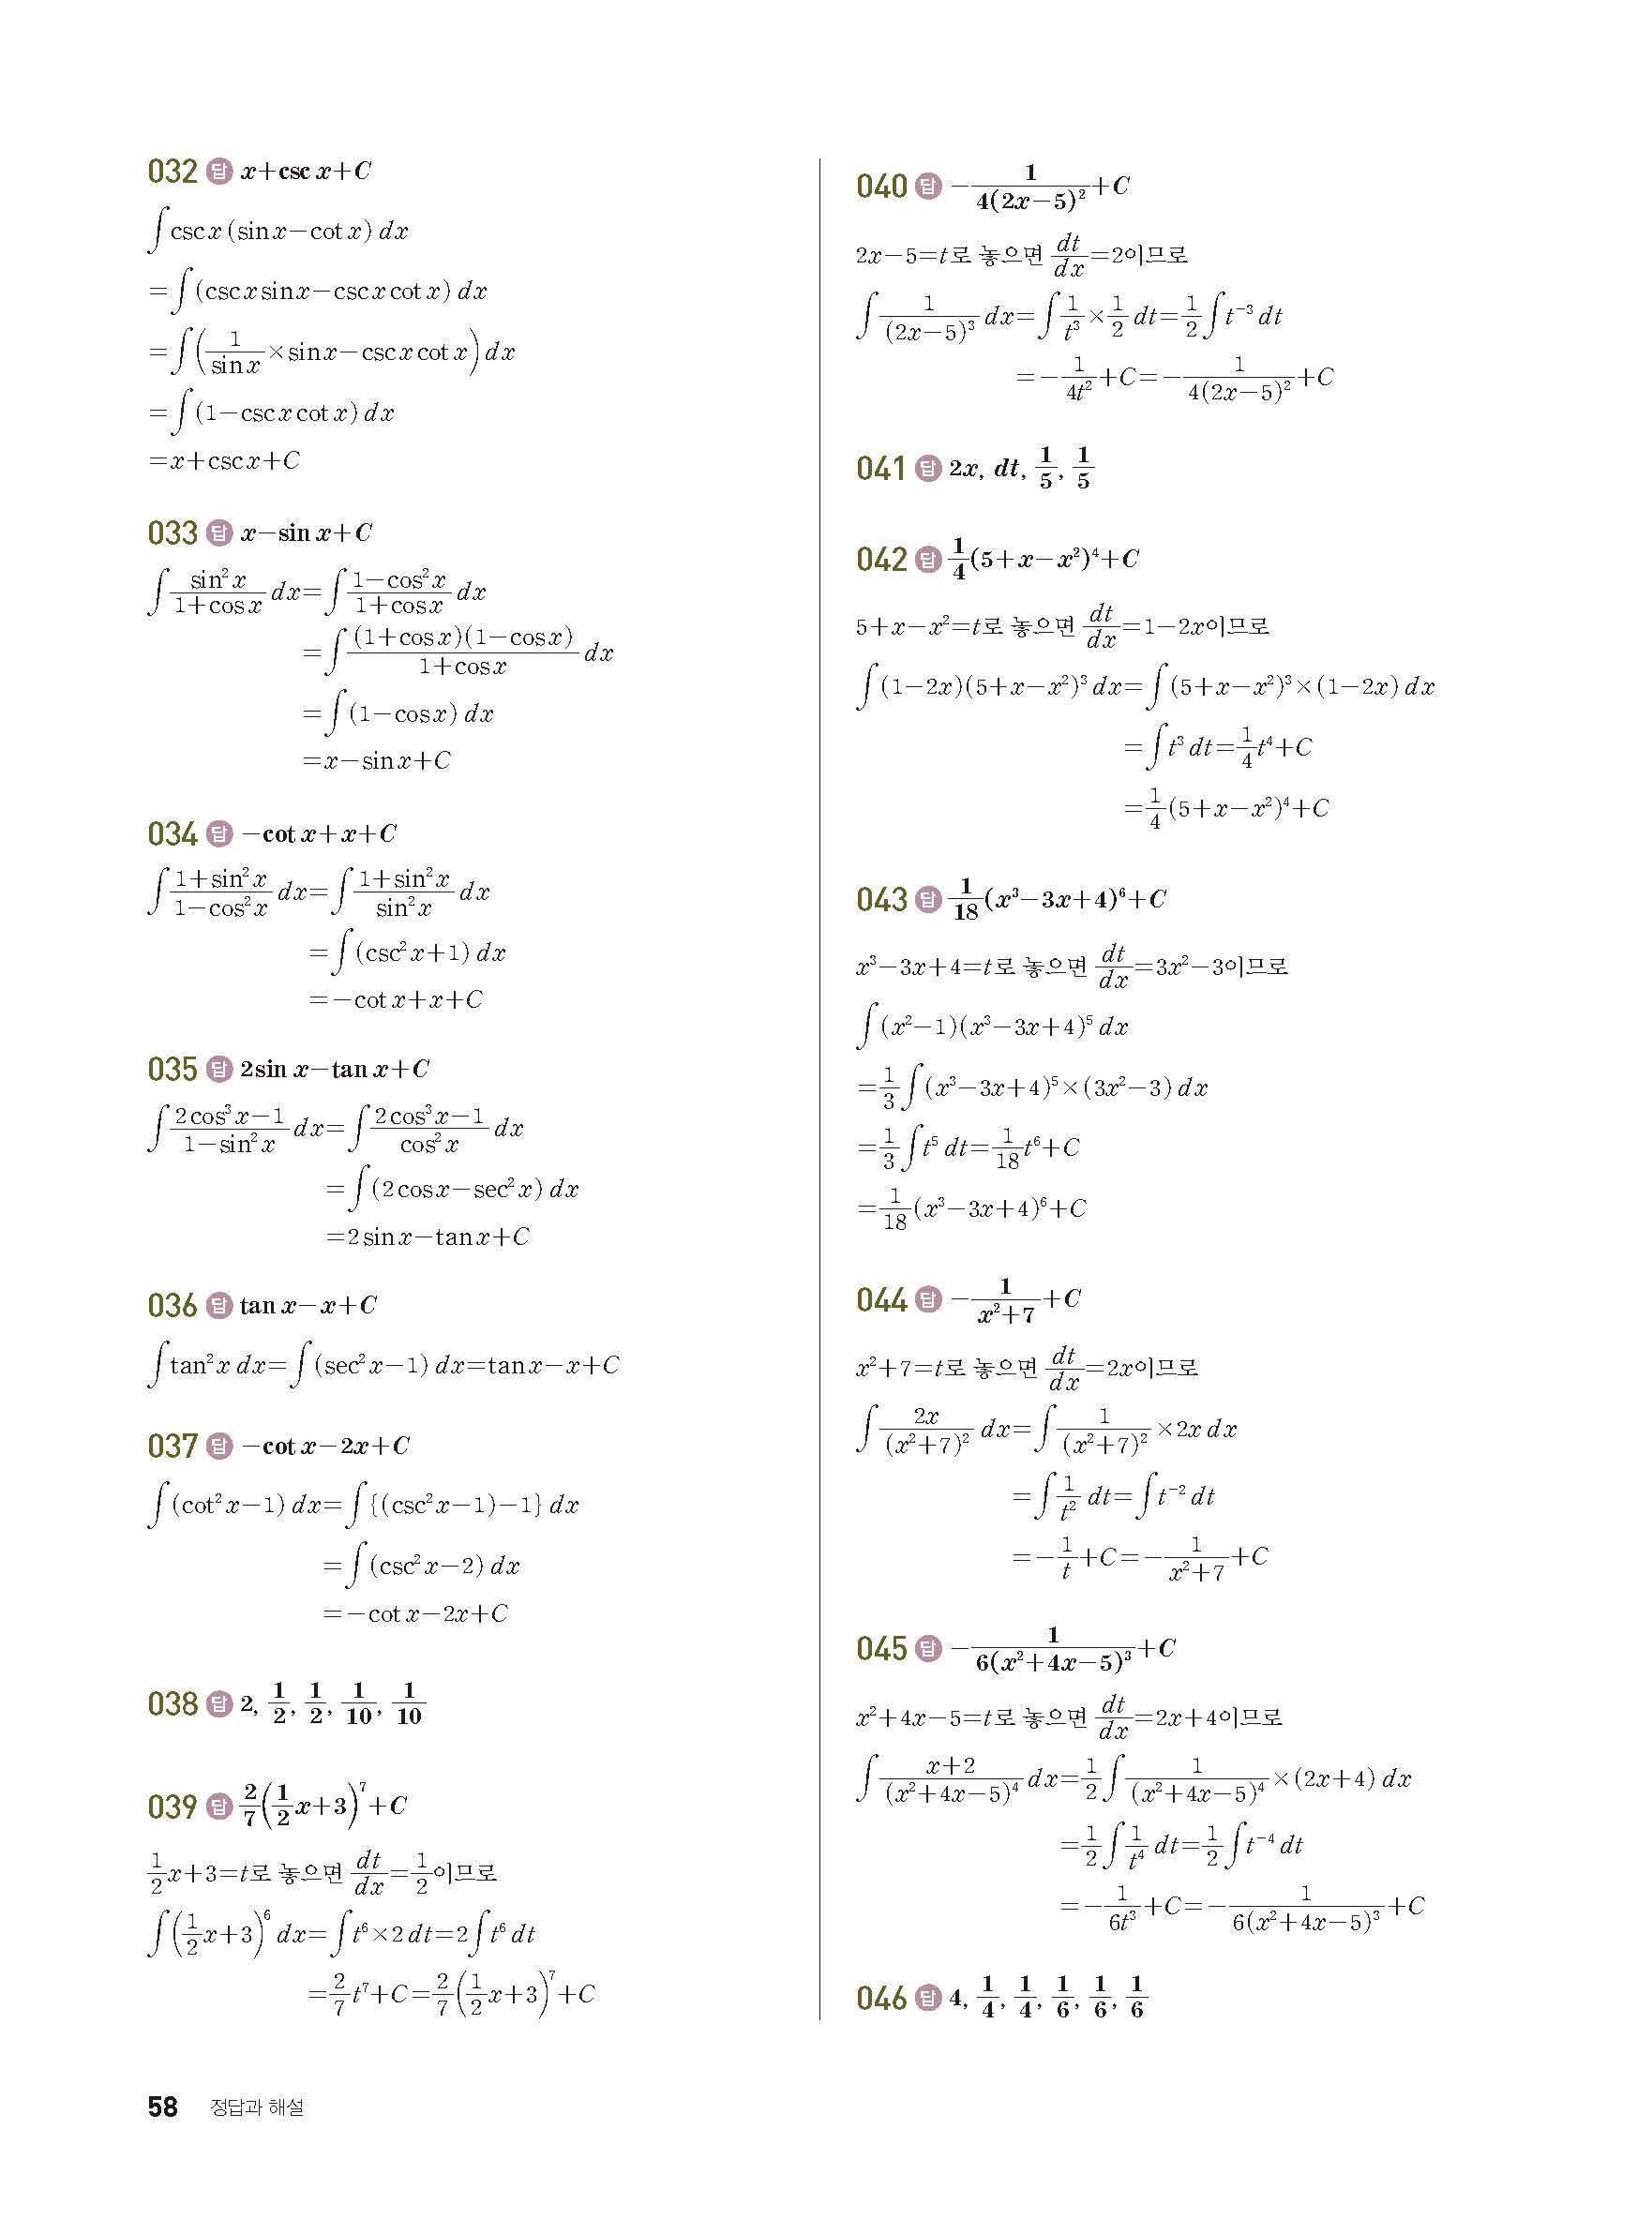 032 답 x+csc x+C
∫csc x(sin x−cot x) dx
=∫(csc x sin x−csc x cot x) dx
=∫(1/sin x×sin x−csc x cot x)dx
=∫(1−csc x cot x) dx
=x+csc x+C
033 답 x−sin x+C
∫sin²x/(1+cos x) dx=∫(1−cos²x)/(1+cos x) dx
=∫(1+cos x)(1−cos x)/(1+cos x) dx
=∫(1−cos x) dx
=x−sin x+C
034 답 −cot x+x+C
∫(1+sin²x)/(1−cos²x) dx=∫(1+sin²x)/sin²x dx
=∫(csc²x+1) dx
=−cot x+x+C
035 답 2sin x−tan x+C
∫(2cos³x−1)/(1−sin²x) dx=∫(2cos³x−1)/cos²x dx
=∫(2cos x−sec²x) dx
=2sin x−tan x+C
036 답 tan x−x+C
∫tan²x dx=∫(sec²x−1) dx=tan x−x+C
037 답 −cot x−2x+C
∫(cot²x−1) dx=∫{(csc²x−1)−1} dx
=∫(csc²x−2) dx
=−cot x−2x+C
038 답 2, 1/2, 1/2, 1/10, 1/10
039 답 2/7(1/2x+3)⁷+C
1/2x+3=t로 놓으면 dt/dx=1/2이므로
∫(1/2x+3)⁶ dx=∫t⁶×2 dt=2∫t⁶ dt
=2/7t⁷+C=2/7(1/2x+3)⁷+C
040 답 −1/4(2x−5)²+C
2x−5=t로 놓으면 dt/dx=2이므로
∫1/(2x−5)³ dx=∫1/t³×1/2 dt=1/2∫t⁻³ dt
=−1/4t²+C=−1/4(2x−5)²+C
041 답 2x, dt, 1/5, 1/5
042 답 1/4(5+x−x²)⁴+C
5+x−x²=t로 놓으면 dt/dx=1−2x이므로
∫(1−2x)(5+x−x²)³ dx=∫(5+x−x²)³×(1−2x) dx
=∫t³ dt=1/4t⁴+C
=1/4(5+x−x²)⁴+C
043 답 1/18(x³−3x+4)⁶+C
x³−3x+4=t로 놓으면 dt/dx=3x²−3이므로
∫(x²−1)(x³−3x+4)⁵ dx
=1/3∫(x³−3x+4)⁵×(3x²−3) dx
=1/3∫t⁵ dt=1/18t⁶+C
=1/18(x³−3x+4)⁶+C
044 답 −1/(x²+7)+C
x²+7=t로 놓으면 dt/dx=2x이므로
∫2x/(x²+7)² dx=∫1/(x²+7)²×2x dx
=∫1/t² dt=∫t⁻² dt
=−1/t+C=−1/(x²+7)+C
045 답 −1/6(x²+4x−5)³+C
x²+4x−5=t로 놓으면 dt/dx=2x+4이므로
∫(x+2)/(x²+4x−5)⁴ dx=1/2∫1/(x²+4x−5)⁴×(2x+4) dx
=1/2∫1/t⁴ dt=1/2∫t⁻⁴ dt
=−1/6t³+C=−1/6(x²+4x−5)³+C
046 답 4, 1/4, 1/4, 1/6, 1/6, 1/6
58 정답과 해설